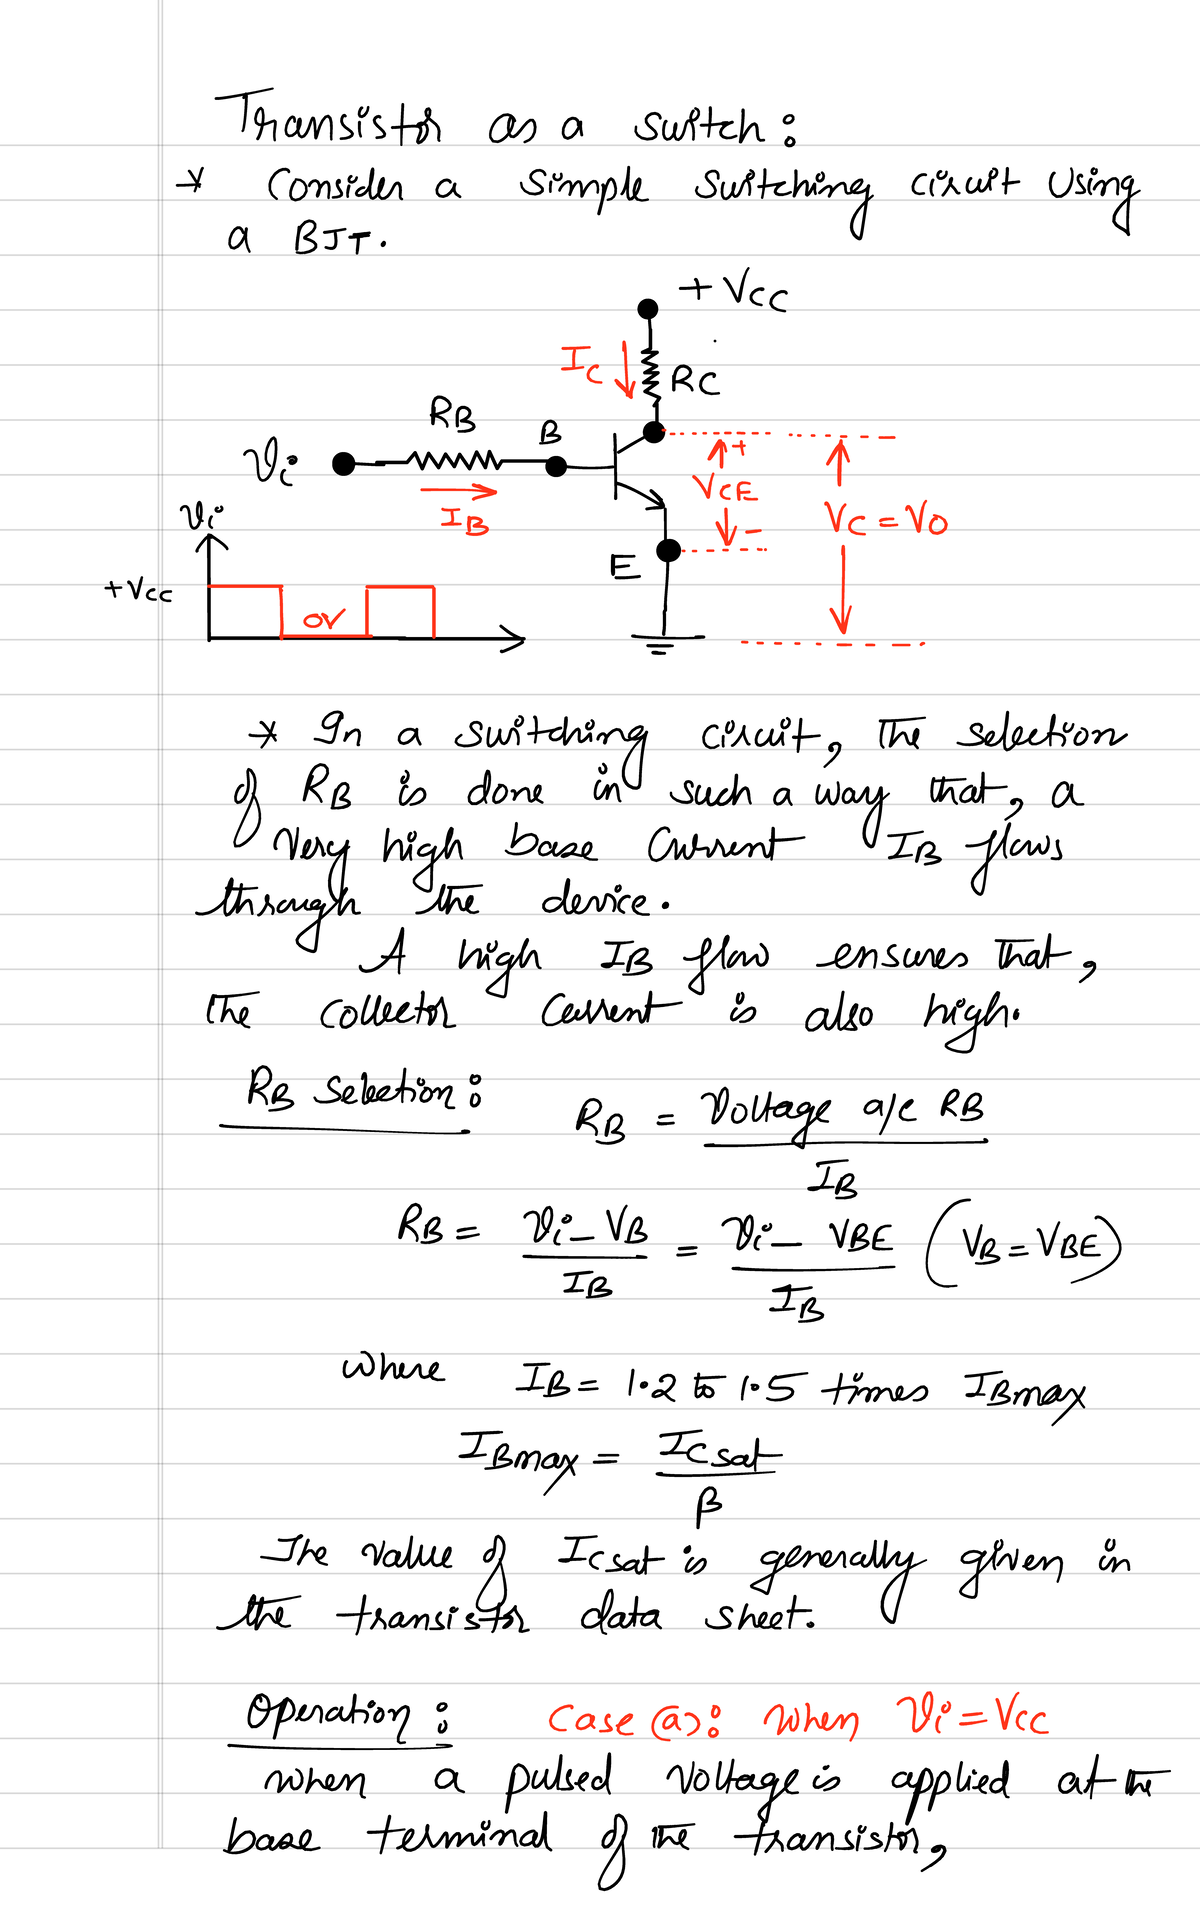 Transistor as a switch:
* Consider a simple switching circuit Using
a BJT.
+VCC
IC
RC
RB
B
Vi
+
VCE
-
IB
VC = VO
Vi
E
+VCC
0V
* In a switching circuit, The selection
of RB is done in such a way that, a
Very high base Current IB flows
through the device.
A high IB flow ensures that,
The collector Current is also high.
RB Selection:
RB = Voltage a/c RB / IB
RB = Vi - VB / IB = Vi - VBE / IB (VB = VBE)
where IB = 1.2 to 1.5 times IBmax
IBmax = ICsat / β
The value of ICsat is generally given in
the transistor data sheet.
Operation: Case (a): When Vi = VCC
when a pulsed Voltage is applied at the
base terminal of the transistor,